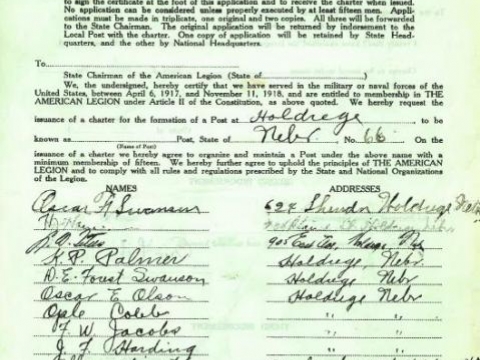 to sign the certificate at the foot of this application and to receive the charter when issued.
No application can be considered unless properly executed by at least fifteen men. Appli-
cations must be made in triplicate, one original and two copies. All three will be forwarded
to the State Chairman. The original application will be returned by indorsement to the
Local Post with the charter. One copy of application will be retained by State Head-
quarters, and the other by National Headquarters.
To
State Chairman of the American Legion (State of )
We, the undersigned, hereby certify that we have served in the military or naval forces of the
United States, between April 6, 1917, and November 11, 1918, and are entitled to membership in THE
AMERICAN LEGION under Article II of the Constitution, as above quoted. We hereby request the
issuance of a charter for the formation of a Post at Holdrege to be
known as Post, State of Nebr. No. 66. On the
(Name of Post)
issuance of a charter we hereby agree to organize and maintain a Post under the above name with a
minimum membership of fifteen. We further agree to uphold the principles of THE AMERICAN
LEGION and to comply with all rules and regulations prescribed by the State and National Organizations
of the Legion.
NAMES ADDRESSES
Oscar Swanson 624 Holdrege
905 East Ave,
K. P. Palmer Holdrege, Nebr.
D. E. Forest Swanson Holdrege Nebr
Oscar E Olson Holdrege Nebr
Opie " "
F. W. Jacobs " "
J. F. Harding " "